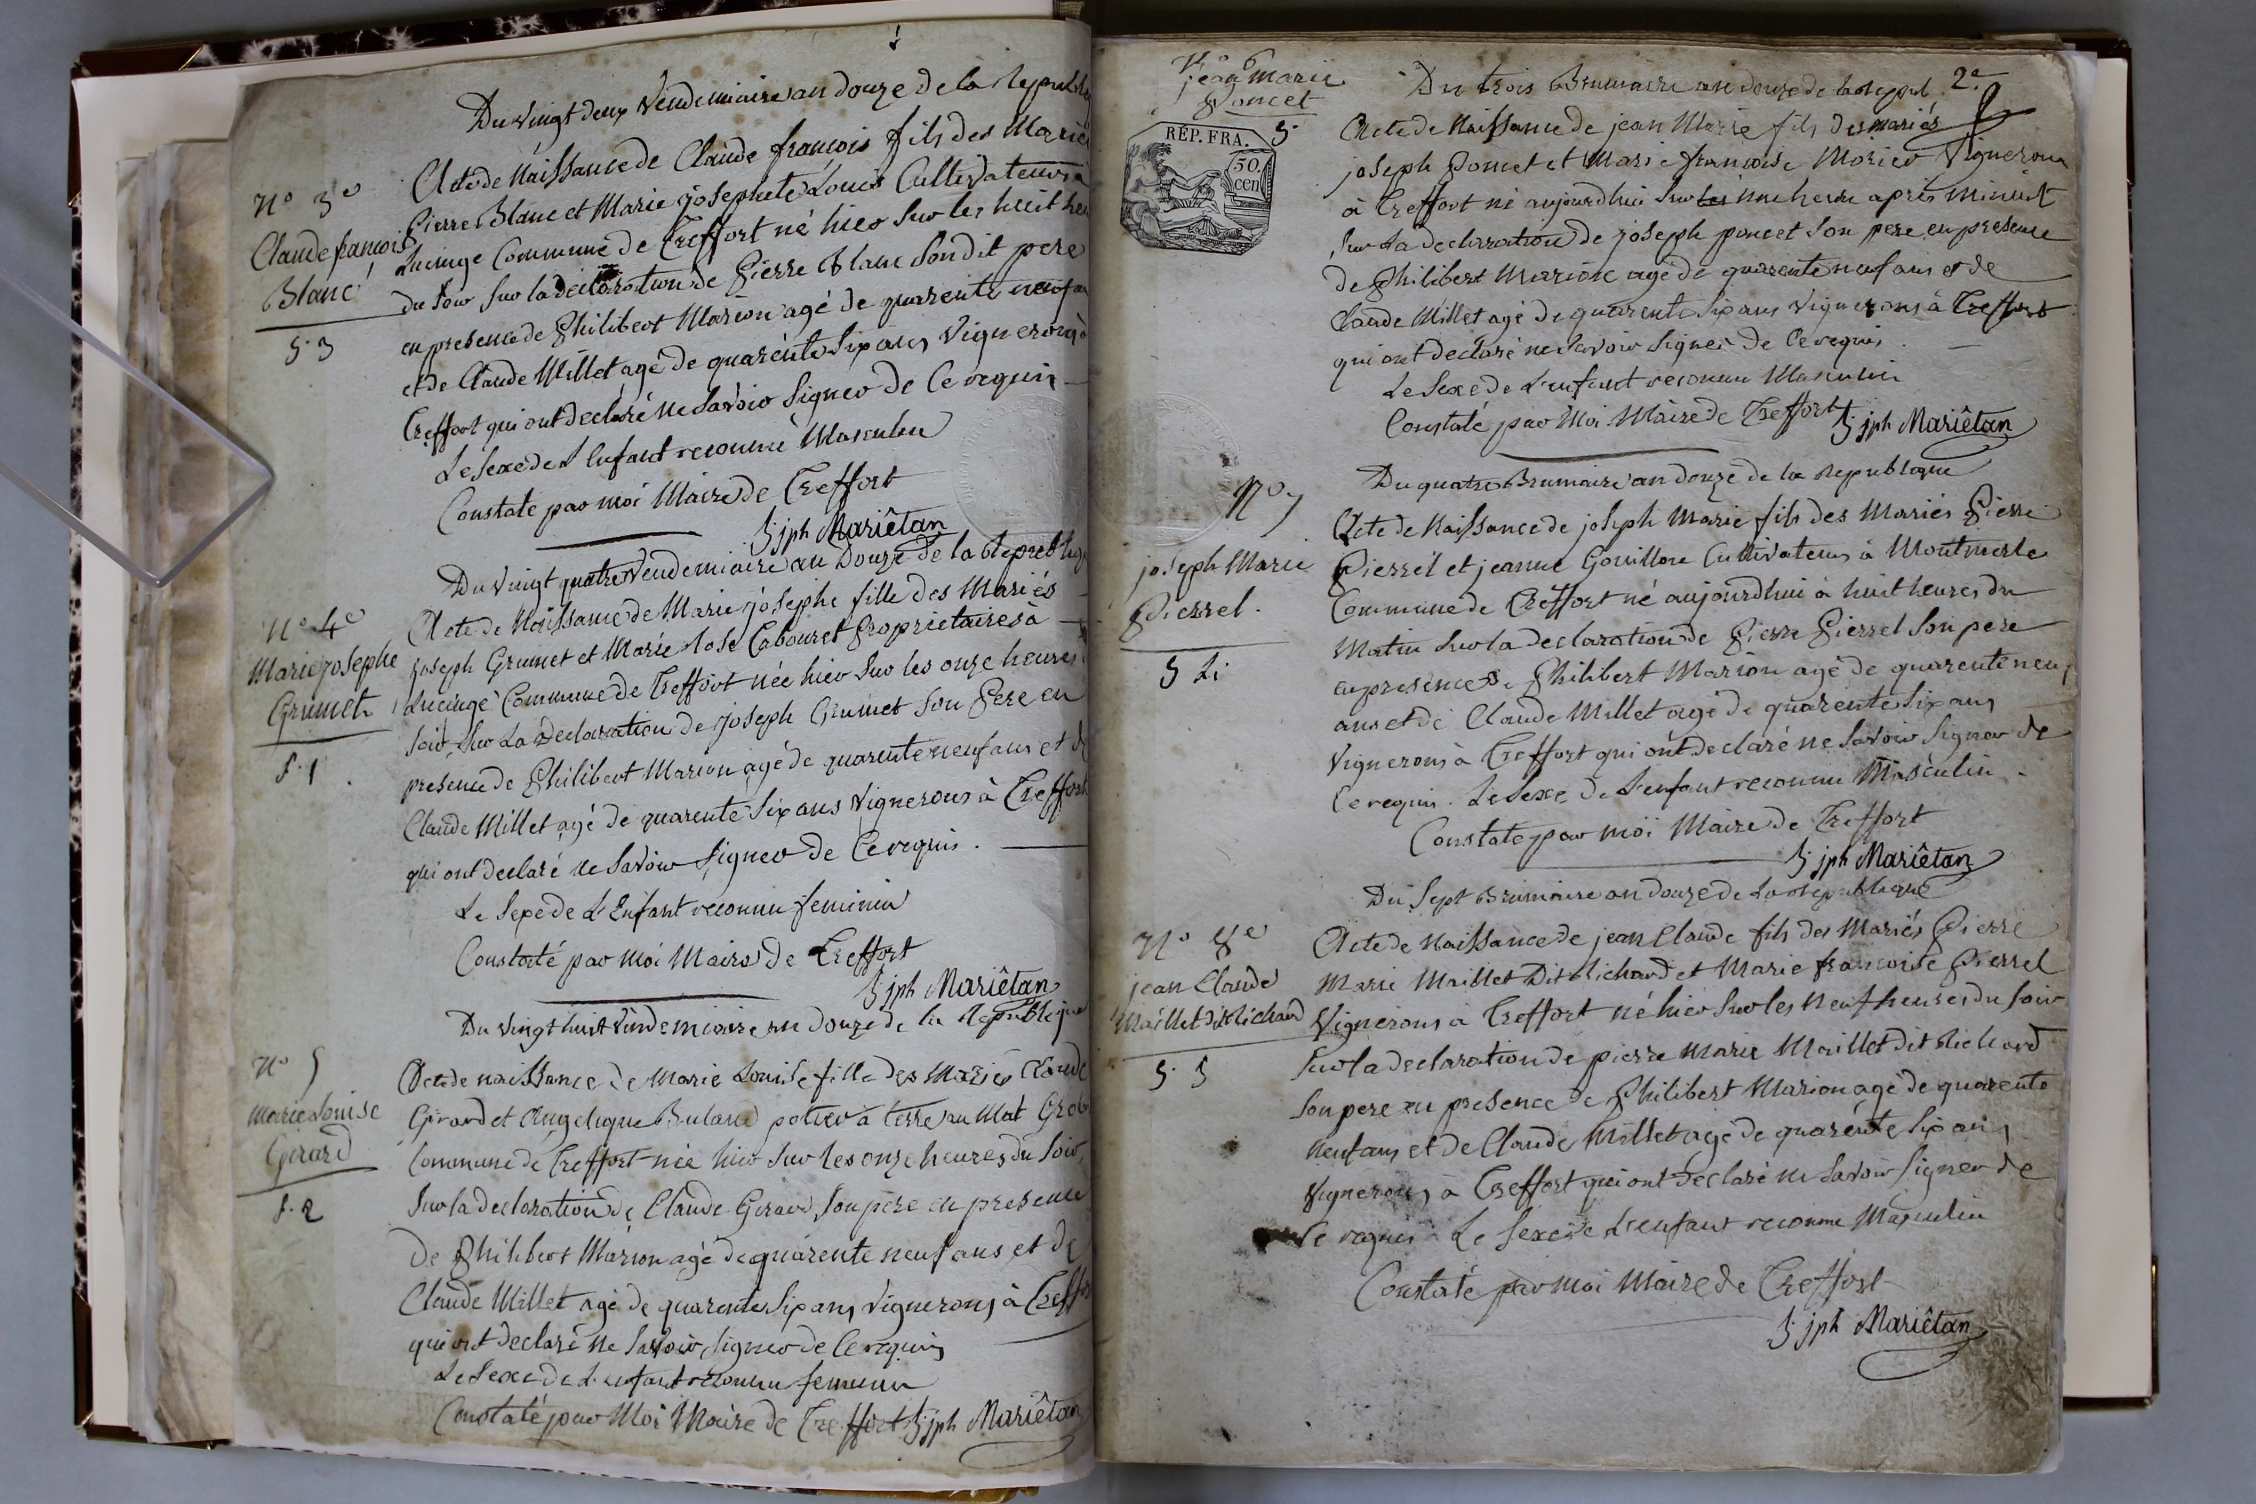 Du vingt deux Vendemiaire an douze de la Republiq
N° 3e
Claude françois
Blanc
5. 3
Acte de Naissance de Claude françois fils des Mariés
Pierre Blanc et Marie josephete Louis Cultivateurs à
Lucinge Commune de Treffort né hier Sur les huit heu
du Soir Sur la declaration de Pierre Blanc Son dit pere
en presence de Philibert Marion agé de quarente neuf an
et de Claude Millet agé de quarente Six ans Vignerons à
Treffort qui ont declaré ne Savoir Signer de Ce requis
Le Sexe de L'Enfant reconnu Masculin
Constaté par moi Maire de Treffort
jph Mariêtan
Du Vingt quatre Vendemiaire an Douze de la Republiq
N° 4e
Marie josephe
Grumet
f. 1
Acte de Naissance de Marie josephe fille des Mariés
joseph Grumet et Marie Rose Cabouret Proprietaires à
Lucinge Commune de Treffort née hier Sur les onze heures
Soir, Sur La declaration de joseph Grumet Son Pere en
presence de Philibert Marion agé de quarente neuf ans et de
Claude Millet agé de quarente Six ans Vignerons à Treffort
qui ont declaré ne Savoir Signer de Ce requis.
Le Sexe de L'Enfant reconnu feminin
Constaté par Moi Maire de Treffort
jph Mariêtan
Du Vingt huit Vendemiaire an douze de la Republique
N° 5
Marie Louise
Girard
f. 2
Acte de naissance de Marie Louise fille des Mariés Claude
Girard et Angelique Buland potier à terre au Mat
Commune de Treffort née hier Sur les onze heures du Soir,
Sur la declaration de Claude Girard, Son pere en presence
de Philibert Marion agé de quarente neuf ans et de
Claude Millet agé de quarente Six ans Vignerons à Treffor
qui ont declaré ne Savoir Signer de Ce requis
Le Sexe de L'enfant reconnu feminin
Constaté par Moi Maire de Treffort jph Mariêtan
N° 6
jean marie
Poncet
5.
REP. FRA.
50.
cen
2e
Du trois Brumaire an douze de la Repub
Acte de Naissance de jean Marie fils des mariés
joseph Poncet et Marie françoise Morier Vignerons
à Treffort né aujourdhui Sur les une heure aprés minuit
Sur La declaration de joseph poncet Son pere en presence
de Philibert Marion agé de quarente neuf ans et de
Claude Millet agé de quarente Six ans Vignerons à Treffort
qui ont declaré ne Savoir Signer de Ce requis.
Le Sexe de L'enfant reconnu Masculin
Constaté par Moi Maire de Treffort
jph Mariêtan
Du quatre Brumaire an douze de la Republique
N° 7
joseph Marie
Pierrel.
Acte de Naissance de joseph Marie fils des Mariés Pierre
Pierrel et jeanne Gouillon Cultivateurs à Montmerle
Commune de Treffort né aujourdhui à huit heures du
Matin Sur la declaration de Pierre Pierrel Son pere
en presence de Philibert Marion agé de quarente neuf
ans et de Claude Millet agé de quarente Six ans
Vignerons à Treffort qui ont declaré ne Savoir Signer de
Ce requis. Le Sexe de L'enfant reconnu Masculin.
Constaté par moi Maire de Treffort
jph Mariêtan
Du Sept Brumaire an douze de La Republique
N° 8e
jean Claude
Maillet dit Richard
5. 5
Acte de Naissance de jean Claude fils des Mariés Pierre
Marie Maillet Dit Richard et Marie françoise Pierrel
Vignerons à Treffort né hier Sur les Neuf heures du Soir
Sur la declaration de pierre Marie Maillet dit Richard
Son pere en presence de Philibert Marion agé de quarente
neuf ans et de Claude Millet agé de quarente Six ans
Vignerons à Treffort qui ont declaré ne Savoir Signer de
Ce requis. Le Sexe de L'enfant reconnu Masculin
Constaté par Moi Maire de Treffort
jph Mariêtan